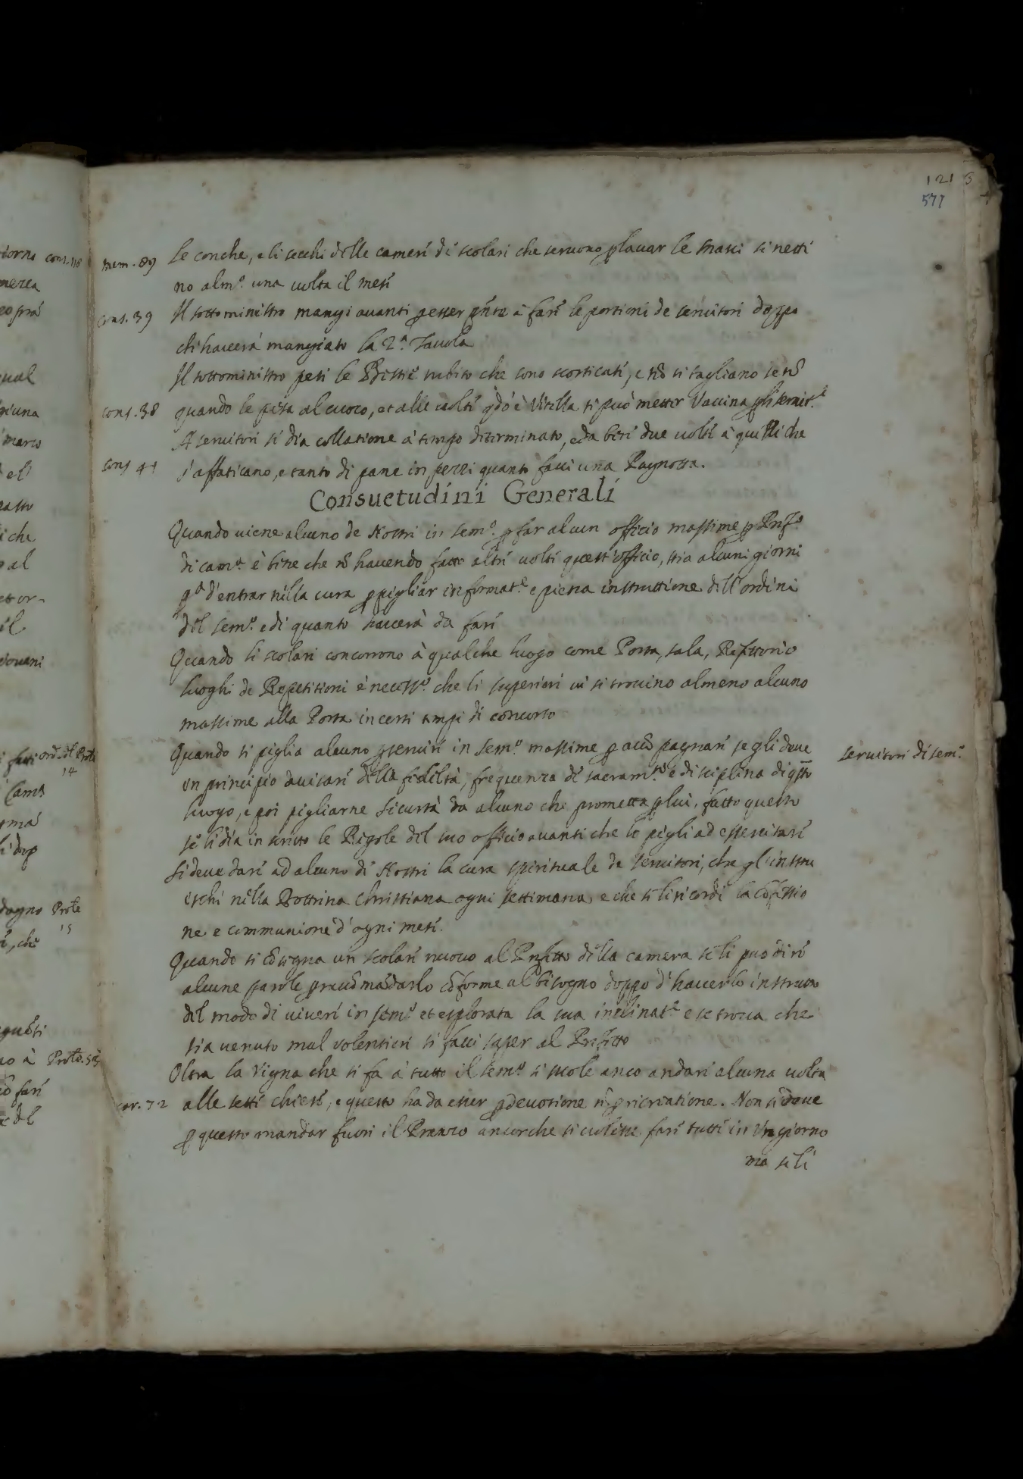 121
577
mem. 89 Le conche, e li secchi delle camere di scolari che servono p lavar le mani si netti
no alm.º una volta il mese
cons. 39 Il sottoministro mangi avanti p esser pñte à fare le portioni de servitori doppo
che haverà mangiato la 2.ª Tavola
Il sottoministro pesi le subito che sono scorticate, e nõ si tagliano se nõ
cons. 38 quando le pesa al cuoco, et alle volte qdo è Vitella si può metter Vaccina
A servitori si dia collatione à tempo determinato, e da bere due volte à quelli che
cons 41 s'affaticano, e tanto di pane in pezzi quanto facci una Pagnotta.
Consuetudini Generali
Quando viene alcuno de Nostri in sem.º p far alcun officio massime p Pref.º
di cam.ª è bene che nõ havendo fatto altre volte quest'officio, stia alcuni giorni
pª d'entrar nella cura p pigliar informat.e e piena instruttione dell'ordini
del sem.º e di quanto haverà da fare
Quando li scolari concorrono à qualche luogo come Porta, sala, Refettorio
luoghi de Repetitioni è necess.º che li superiori vi si trovino almeno alcuno
massime alla Porta in certi tempi di concorso
Quando si piglia alcuno p servire in sem.º massime p accõpagnare se gli deve servitori di sem.º
in principio avisare della fedeltà, frequenza de sacram.ti e disciplina di qsto
luogo, e poi pigliarne sicurtà da alcuno che prometta p lui, fatto questo
se li dia in scritto le Regole del suo officio avanti che lo pigli ad essercitare
Si deve dare ad alcuno di Nostri la cura spirituale de servitori, che gl'instru
ischi nella Dottrina christiana ogni settimana e che se li ricordi la cõfessio
ne e communione d'ogni mese.
Quando si cõsegna un scolare nuovo al Prefetto della camera se li può dire
alcune parole p raccõmãdarlo cõforme al bisogno doppo d'haverlo instrutto
del modo di vivere in sem.º et esplorata la sua inclinat.e e se trova che
sia venuto mal volentieri si facci saper al Prefetto
Oltra la vigna che si fa à tutto il sem.º si suole anco andare alcuna volta
72 alle sette chiese, e questo ha da esser p devotione nõ p ricreatione. Non si deve
p questo mandar fuori il Pranzo ancorche si volesse fare tutte in un giorno
ma se li